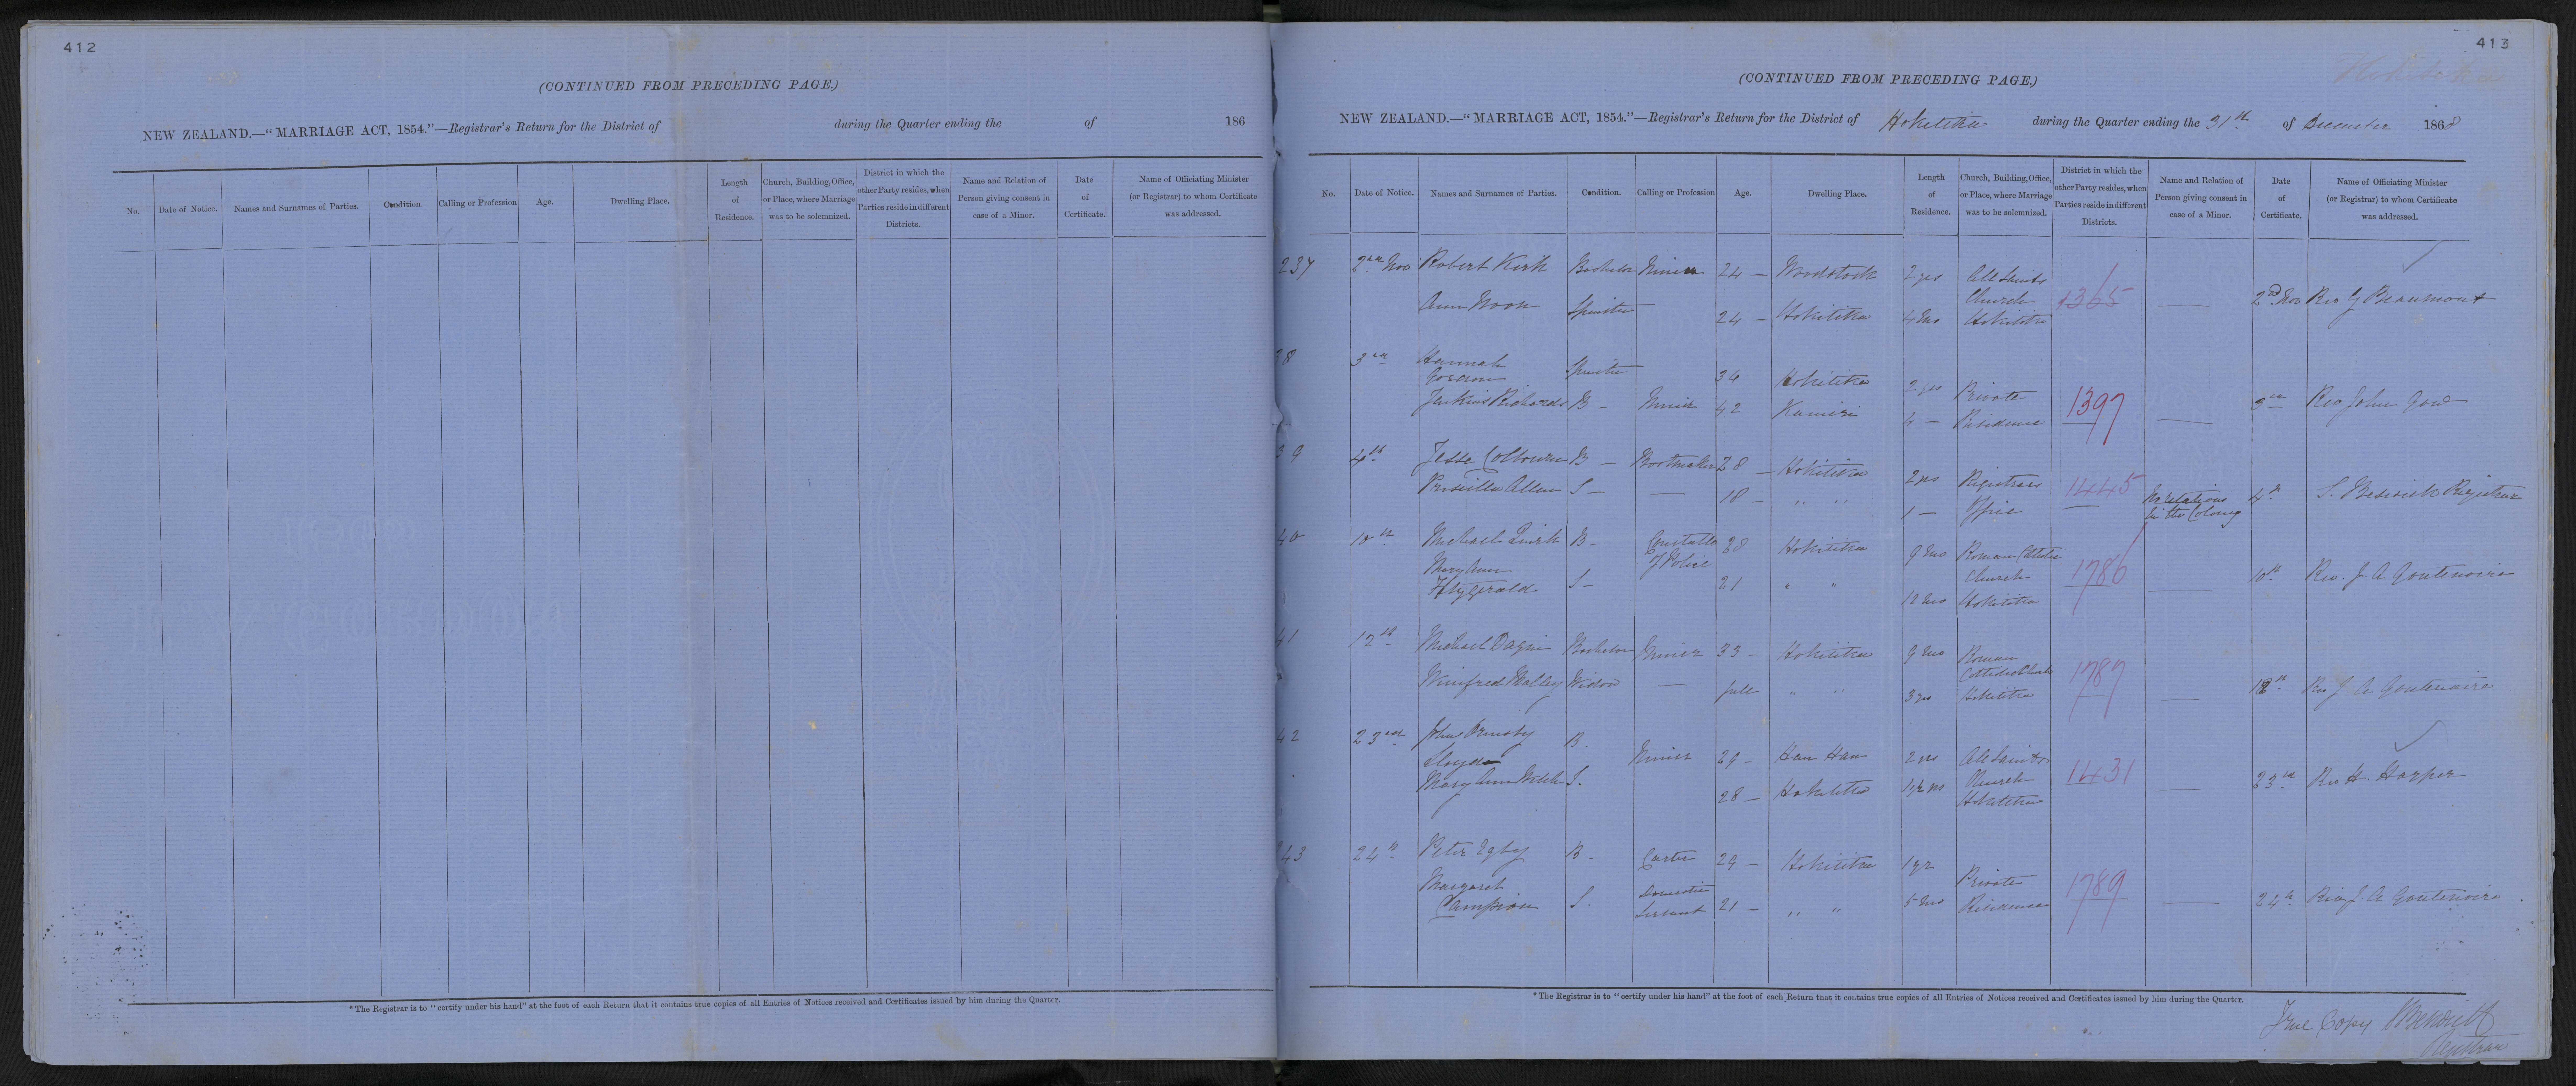 412
(CONTINUED FROM PRECEDING PAGE.)
NEW ZEALAND.—"MARRIAGE ACT, 1854."—Registrar's Return for the District of during the Quarter ending the of 186
No. Date of Notice. Names and Surnames of Parties. Condition. Calling or Profession Age. Dwelling Place. Length of Residence. Church, Building, Office, or Place, where Marriage was to be solemnized. District in which the other Party resides, when Parties reside in different Districts. Name and Relation of Person giving consent in case of a Minor. Date of Certificate. Name of Officiating Minister (or Registrar) to whom Certificate was addressed.
*The Registrar is to "certify under his hand" at the foot of each Return that it contains true copies of all Entries of Notices received and Certificates issued by him during the Quarter.
413
Hokitika
(CONTINUED FROM PRECEDING PAGE.)
NEW ZEALAND.—"MARRIAGE ACT, 1854."—Registrar's Return for the District of Hokitika during the Quarter ending the 31st of December 1868
No. Date of Notice. Names and Surnames of Parties. Condition. Calling or Profession Age. Dwelling Place. Length of Residence. Church, Building, Office, or Place, where Marriage was to be solemnized. District in which the other Party resides, when Parties reside in different Districts. Name and Relation of Person giving consent in case of a Minor. Date of Certificate. Name of Officiating Minister (or Registrar) to whom Certificate was addressed.
237 2nd Nov Robert Kirk Bachelor Miner 24 — Woodstock 2 yrs All Saints
Church 1365 — 2nd Nov Rev G Beaumont
Ann Spinster 24 — Hokitika 4 mo Hokitika
38 3rd Hannah
Spinster 34 Hokitika 2 yrs Private
Jenkins Richards B — Miner 42 Kanieri 4 — Residence 1397 — 3rd Rev John Gow
39 4th Jesse B — Bootmaker 28 — Hokitika 2 yrs Registrars
Priscilla Allen S — — 18 — " " 1 — Office 1445 No relations in the Colony 4th S. Beswick Registrar
40 10th Michael Quirk B — Constable of Police 38 Hokitika 9 mo Roman Catholic
Mary Ann
Fitzgerald S — 21 " " 12 mo Church Hokitika 1786 — 10th Rev. J. A. Goutenoire
41 12th Michael Bachelor Miner 33 — Hokitika 9 mo Roman
Catholic Church
Winifred Malley Widow — full " " 3 yrs Hokitika 1787 — 12th Rev J. A. Goutenoire
42 23rd John Ormsby
Lloyd B. Miner 29 — Hau Hau 2 yrs All Saints
Mary Ann S. 28 — Hokitika Church Hokitika 1431 — 23rd Rev H. Harper
243 24th Peter B — Carter 29 — Hokitika 1 yr Private
Margaret
Campion S. Domestic Servant 21 — " " 5 mo Residence 1789 — 24th Rev J. A. Goutenoire
*The Registrar is to "certify under his hand" at the foot of each Return that it contains true copies of all Entries of Notices received and Certificates issued by him during the Quarter.
True Copy S Beswick
Registrar